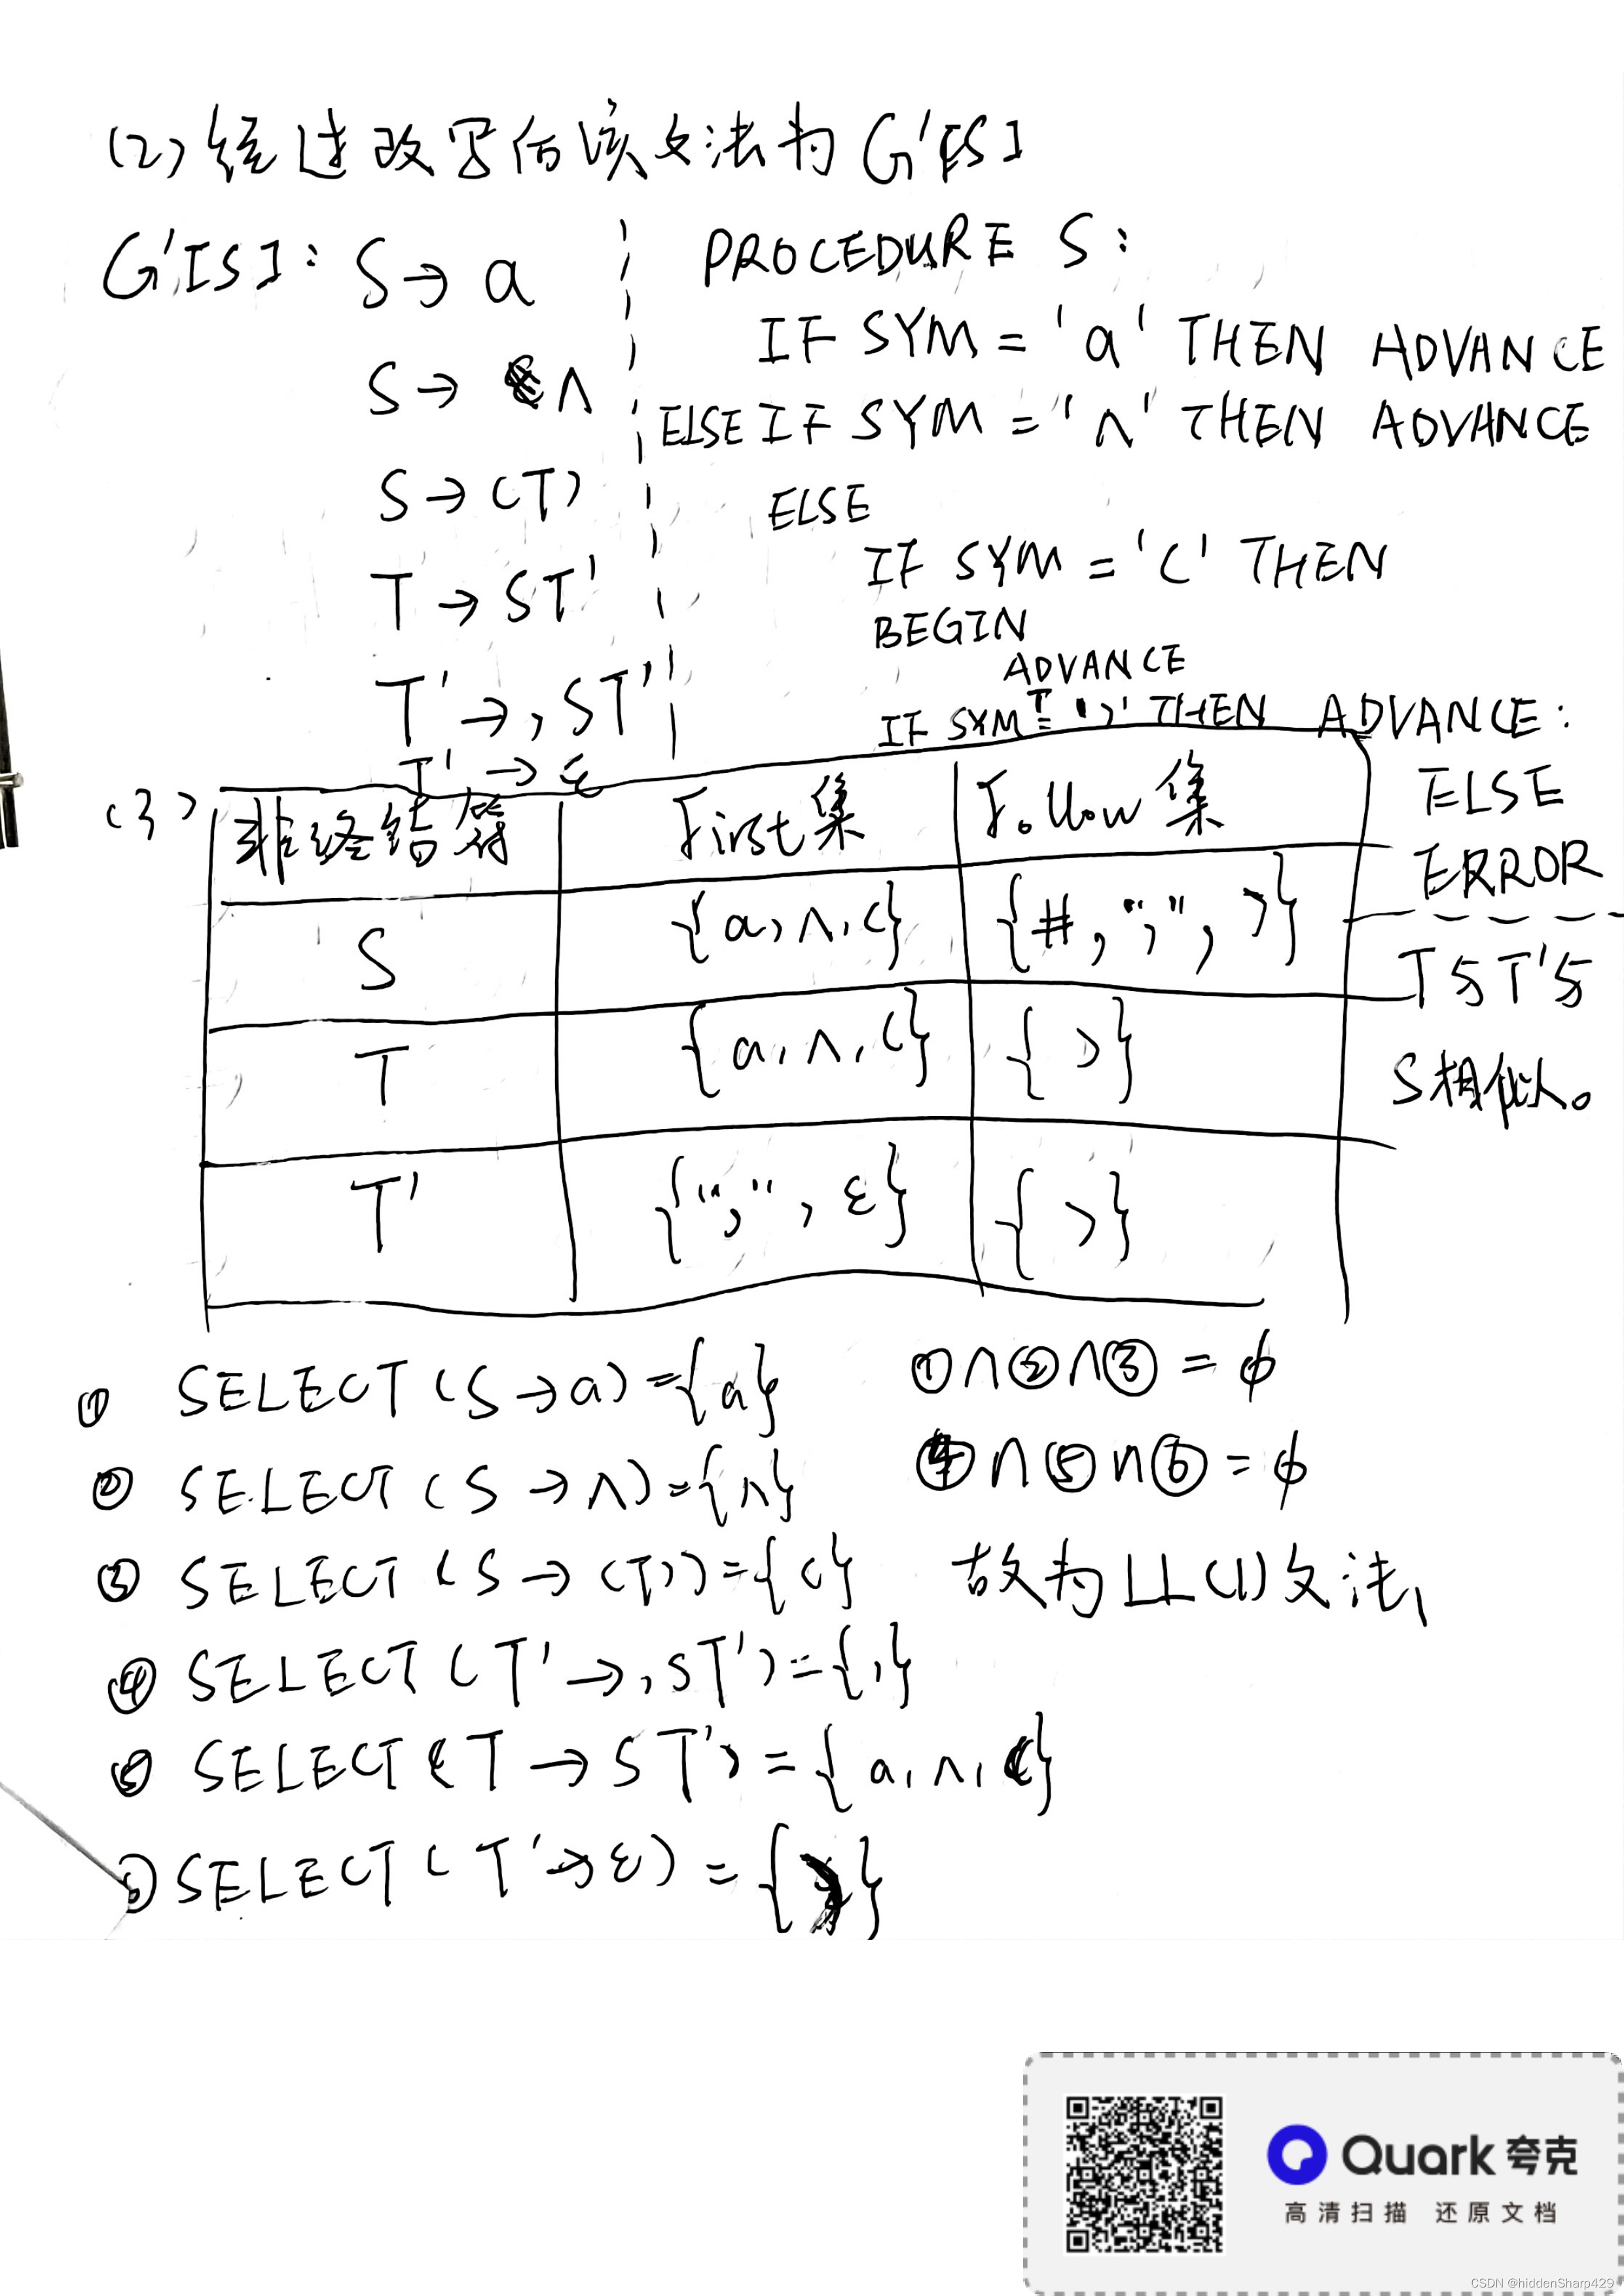 (2)经过改写后该文法为G'[S]
G'[S]: S→a
S→∧
S→(T)
T→ST'
T'→,ST'
T'→ε
PROCEDURE S:
IF SYM='a' THEN ADVANCE
ELSE IF SYM='∧' THEN ADVANCE
ELSE
IF SYM='(' THEN
BEGIN
ADVANCE
T
IF SYM=')' THEN ADVANCE:
ELSE
ERROR
T与T'与
S相似。
(3)
非终结符 First集 Follow集
S {a,∧,(} {#,",",)}
T {a,∧,(} {)}
T' {",",ε} {)}
① SELECT(S→a)={a}
② SELECT(S→∧)={∧}
③ SELECT(S→(T))={(}
④ SELECT(T'→,ST')={,}
⑤ SELECT(T→ST')={a,∧,(}
⑥ SELECT(T'→ε)={)}
①∩②∩③=φ
④∩⑤∩⑥=φ
故为LL(1)文法,
Quark 夸克
高清扫描 还原文档
CSDN @hiddenSharp429